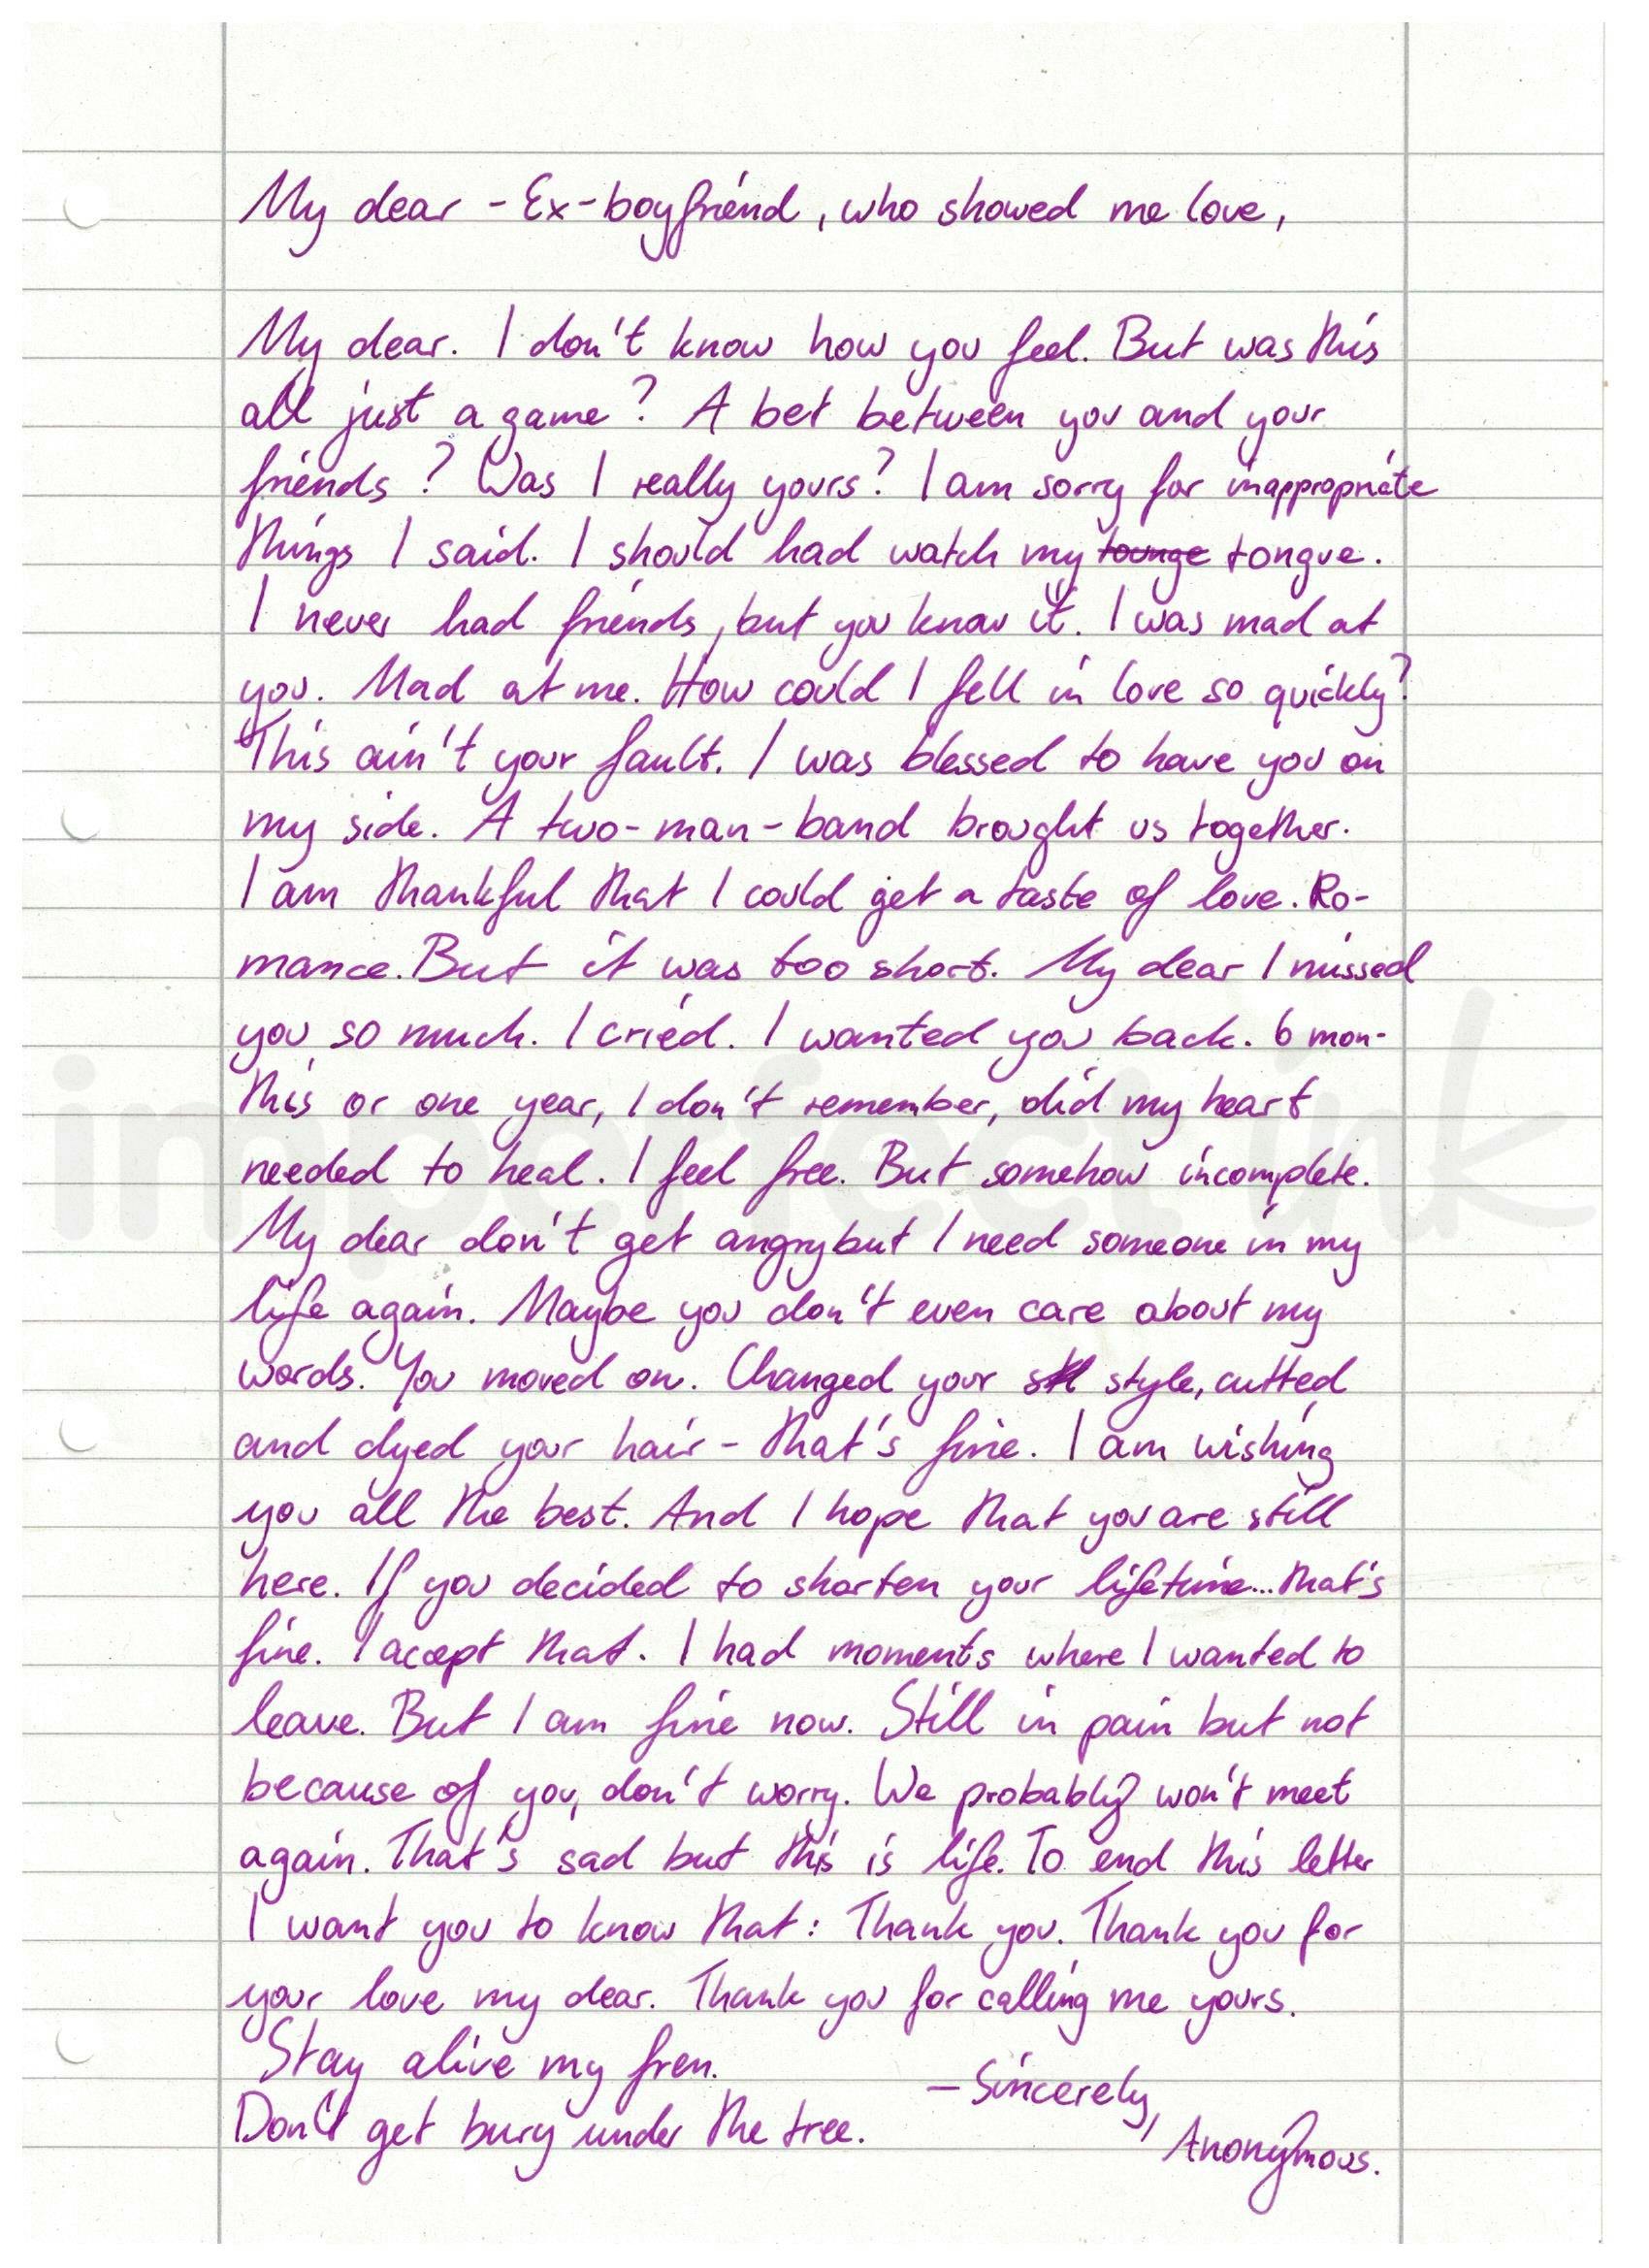 My dear - Ex-boyfriend, who showed me love,
My dear. I don't know how you feel. But was this
all just a game? A bet between you and your
friends? Was I really yours? I am sorry for inappropriate
things I said. I should had watch my tounge tongue.
I never had friends, but you know it. I was mad at
you. Mad at me. How could I fell in love so quickly?
This ain't your fault. I was blessed to have you on
my side. A two-man-band brought us together.
I am thankful that I could get a taste of love. Ro-
mance. But it was too short. My dear I missed
you so much. I cried. I wanted you back. 6 mon-
ths or one year, I don't remember, did my heart
needed to heal. I feel free. But somehow incomplete.
My dear don't get angry but I need someone in my
life again. Maybe you don't even care about my
words. You moved on. Changed your style, cutted
and dyed your hair - that's fine. I am wishing
you all the best. And I hope that you are still
here. If you decided to shorten your lifetime... that's
fine. I accept that. I had moments where I wanted to
leave. But I am fine now. Still in pain but not
because of you, don't worry. We probably won't meet
again. That's sad but this is life. To end this letter
I want you to know that: Thank you. Thank you for
your love my dear. Thank you for calling me yours.
Stay alive my fren.
Don't get bury under the tree.
- Sincerely,
Anonymous.
imperfect ink